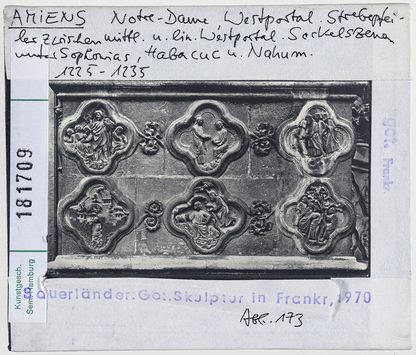 AMIENS Notre-Dame Westportal. Strebepfei-
ler zwischen mittl. u. lin. Westportal. Sockelszenen
unter Sophonias, Habacuc u. Nahum.
1225-1235
GOT.
Frankr.
181709
Kunstgesch.
Sem. Hamburg
Sauerländer: Got. Skulptur in Frankr, 1970
Abb. 173